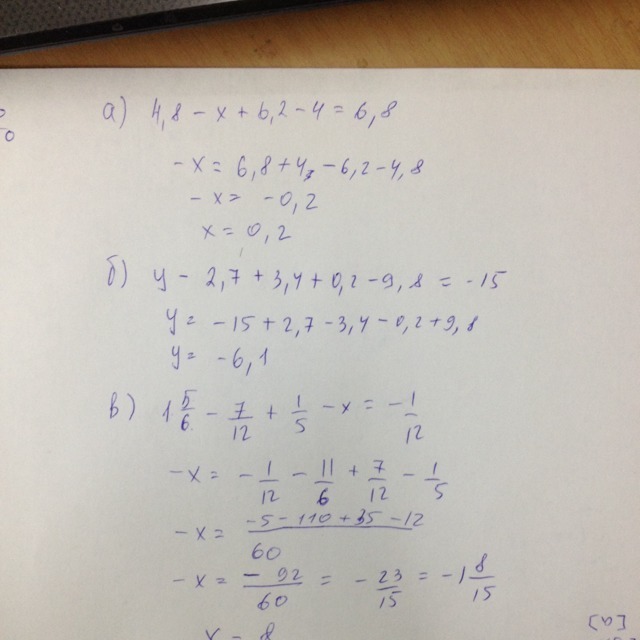 а) 4,8 - x + 6,2 - 4 = 6,8
-x = 6,8 + 4, - 6,2 - 4,8
-x = -0,2
x = 0,2
б) y - 2,7 + 3,4 + 0,2 - 9,8 = -15
y = -15 + 2,7 - 3,4 - 0,2 + 9,8
y = -6,1
в) 1 5/6 - 7/12 + 1/5 - x = -1/12
-x = -1/12 - 11/6 + 7/12 - 1/5
-x = (-5 - 110 + 35 - 12)/60
-x = -92/60 = -23/15 = -1 8/15